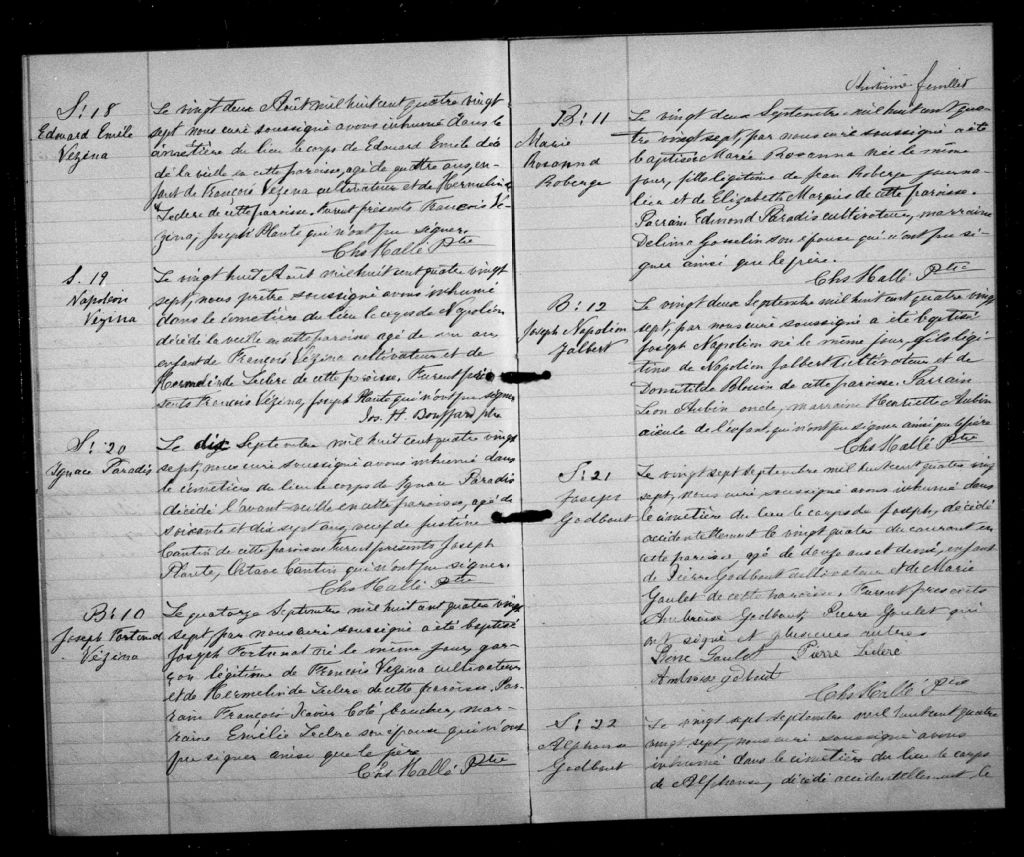 S: 18
Edouard Emile
Vézina
Le vingt deux Août mil huit cent quatre vingt
sept nous curé soussigné avons inhumé dans le
cimétière du lieu le corps de Edouard Emile décé
dé la vieille en cette paroisse, agé de quatre ans, en-
fant de François Vézina cultivateur et de Hermeline
Leclerc de cette paroisse. Furent présents François Vé-
zina, Joseph Plante qui n'ont pu signer.
Chs Hallé Ptre
S. 19
Napoléon
Vézina
Le vingt huit Août mil huit cent quatre vingt
sept, nous prêtre soussigné avons inhumé
dans le cimetière du lieu le corps de Napoléon
décédé la veille en cette paroisse agé de un an
enfant de François Vézina cultivateur et de
Hermeline Leclerc de cette paroisse. Furent pré
sents François Vézina, Joseph Plante qui n'ont pu signer
Jos. H. Bouffard ptre
S: 20
Ignace Paradis
Le dix Septembre mil huit cent quatre vingt
sept, nous curé soussigné avons inhumé dans
le cimetière du lieu le corps de Ignace Paradis
décédé l'avant veille en cette paroisse, agé de
soixante et dix sept ans, veuf de Justine
Cantin de cette paroisse Furent présents Joseph
Plante, Octave Cantin qui n'ont pu signer.
Chs Hallé Ptre
B: 10
Joseph Fortunat
Vézina
Le quatorze Septembre mil huit cent quatre vingt
sept par nous curé soussigné a été baptisé
Joseph Fortunat né le même jour, gar-
çon légitime de François Vézina cultivateur
et de Hermeline Leclerc de cette paroisse. Par-
rain François Xavier Coté, boucher, mar-
raine Emélie Leclerc son épouse qui n'ont
pu signer ainsi que le père
Chs Hallé Ptre
Huitième feuillet
B: 11
Marie
Rosanna
Roberge
Le vingt deux Septembre mil huit cent qua-
tre vingt sept, par nous curé soussigné a été
baptisée Marie Rosanna née le même
jour, fille légitime de Jean Roberge journa-
lier et de Elizabeth Marquis de cette paroisse.
Parrain Edmond Paradis cultivateur, marraine
Delima Gosselin son épouse qui n'ont pu si-
gner ainsi que le père.
Chs Hallé Ptre
B: 12
Joseph Napoléon
Jalbert
Le vingt deux Septembre mil huit cent quatre vingt
sept, par nous curé soussigné a été baptisé
Joseph Napoléon né le même jour, fils légi-
time de Napoléon Jalbert cultivateur et de
Domitilde Blouin de cette paroisse. Parrain
Léon Aubin oncle, marraine Henriette Aubin
aieule de l'enfant, qui n'ont pu signer ainsi que le père
Chs Hallé Ptre
S: 21
Joseph
Godbout
Le vingt sept septembre mil huit cent quatre vingt
sept, nous curé soussigné avons inhumé dans
le cimetière du lieu le corps de Joseph, décédé
accidentellement le vingt quatre du courant en
cette paroisse agé de douze ans et demi, enfant
de Pierre Godbout cultivateur et de Marie
Goulet de cette paroisse. Furent présents
Ambroise Godbout, Pierre Goulet qui
ont signé et plusieurs autres
Pierre Goulet Pierre Leclerc
Ambroise godbout
Chs Hallé Ptre
S: 22
Alphonse
Godbout
Le vingt sept septembre mil huit cent quatre
vingt sept, nous curé soussigné avons
inhumé dans le cimetière du lieu le corps
de Alphonse, décédé accidentellement le